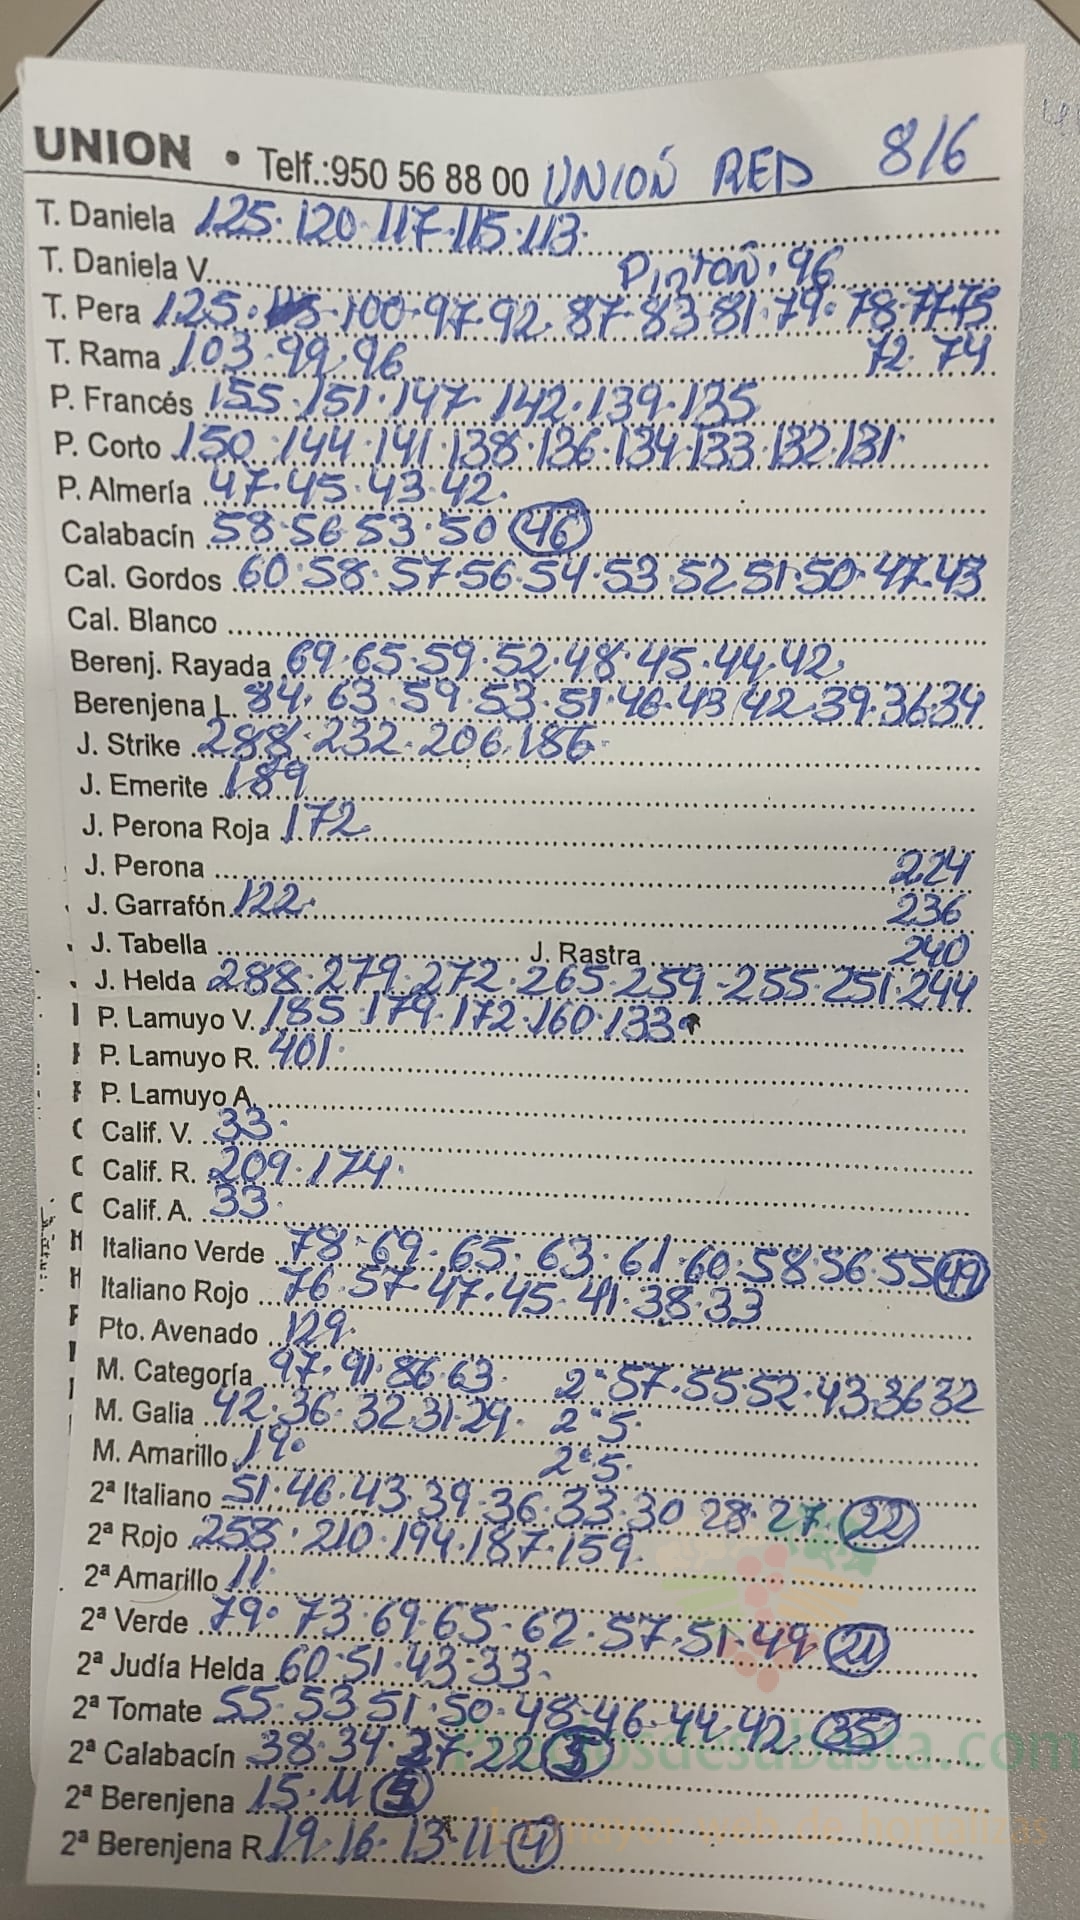 UNION • Telf.:950 56 88 00 UNIÓN RED 8/6
T. Daniela 125. 120. 117. 115. 113.
T. Daniela V. Pintón. 96
T. Pera 125. 100. 97. 92. 87. 83. 81. 79. 78. 77. 75
T. Rama 103. 99. 96 72. 74
P. Francés 155. 151. 147. 142. 139. 135
P. Corto 150. 144. 141. 138. 136. 134. 133. 132. 131.
P. Almería 47. 45. 43. 42.
Calabacín 58. 56. 53. 50 46
Cal. Gordos 60. 58. 57. 56. 54. 53. 52. 51. 50. 47. 43
Cal. Blanco
Berenj. Rayada 69. 65. 59. 52. 48. 45. 44. 42.
Berenjena L. 84. 63. 59. 53. 51. 46. 43. 42. 39. 36. 34
J. Strike 288. 232. 206. 186.
J. Emerite 189
J. Perona Roja 172
J. Perona 224
J. Garrafón 122. 236
J. Tabella J. Rastra 240
J. Helda 288. 279. 272. 265. 259. 255. 251. 244
P. Lamuyo V. 185. 179. 172. 160. 133.
P. Lamuyo R. 401.
P. Lamuyo A.
Calif. V. 33.
Calif. R. 209. 174.
Calif. A. 33.
Italiano Verde 78. 69. 65. 63. 61. 60. 58. 56. 55 49
Italiano Rojo 76. 57. 47. 45. 41. 38. 33
Pto. Avenado 129.
M. Categoría 97. 91. 86. 63. 2ª 57. 55. 52. 43. 36 32
M. Galia 42. 36. 32. 31. 29. 2ª 5.
M. Amarillo 19. 2ª 5.
2ª Italiano 51. 46. 43. 39. 36. 33. 30 28. 27. 22
2ª Rojo 258. 210. 194. 187. 159.
2ª Amarillo 11.
2ª Verde 79. 73. 69. 65. 62. 57. 51. 49 21
2ª Judía Helda 60. 51. 43. 33.
2ª Tomate 55. 53 51. 50. 48. 46. 44. 42. 35
2ª Calabacín 38. 34. 27. 22
Preciosdesubasta.com
2ª Berenjena 15. 11
La mayor web de hortalizas
2ª Berenjena R. 19. 16. 13. 11 4